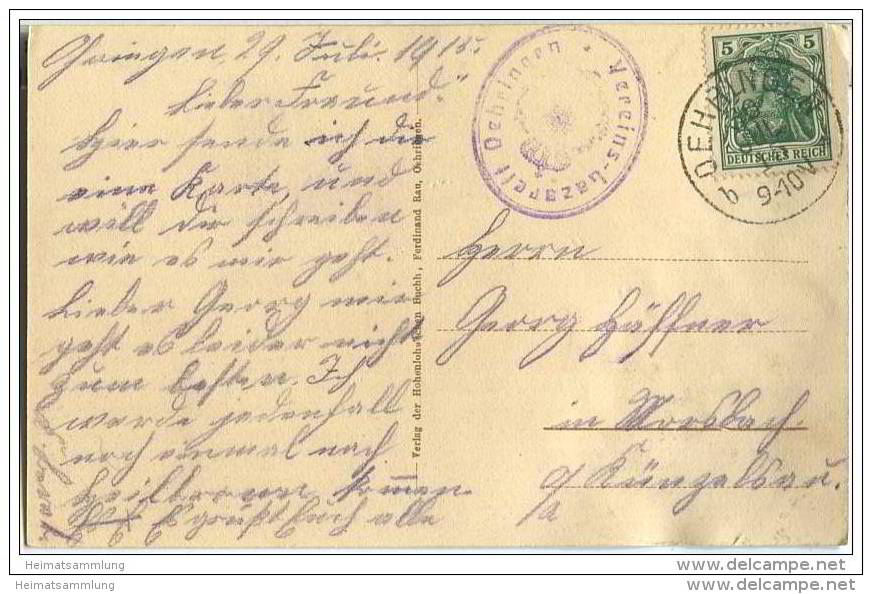 Öhringen 29. Juli. 1915.
Lieber Freund!
Hier sende ich dir
eine Karte, und
will dir schreiben
wie es mir geht.
Lieber Georg mir
geht es leider nicht
zum besten. Ich
werde jedenfall
noch einmal nach
Heilbronn kommen.
Es grüßt Euch alle
Verlag der Hohenlohe'schen Buchh, Ferdinand Rau, Oehringen.
Vereins-Lazarett Oehringen
5 5
DEUTSCHES REICH
OEHRINGEN
9-10V
b
Herrn
Georg Häffner
in Morsbach
a/ Künzelsau.
delcampe.net
Heimatsammlung
delcampe.net
Heimatsammlung